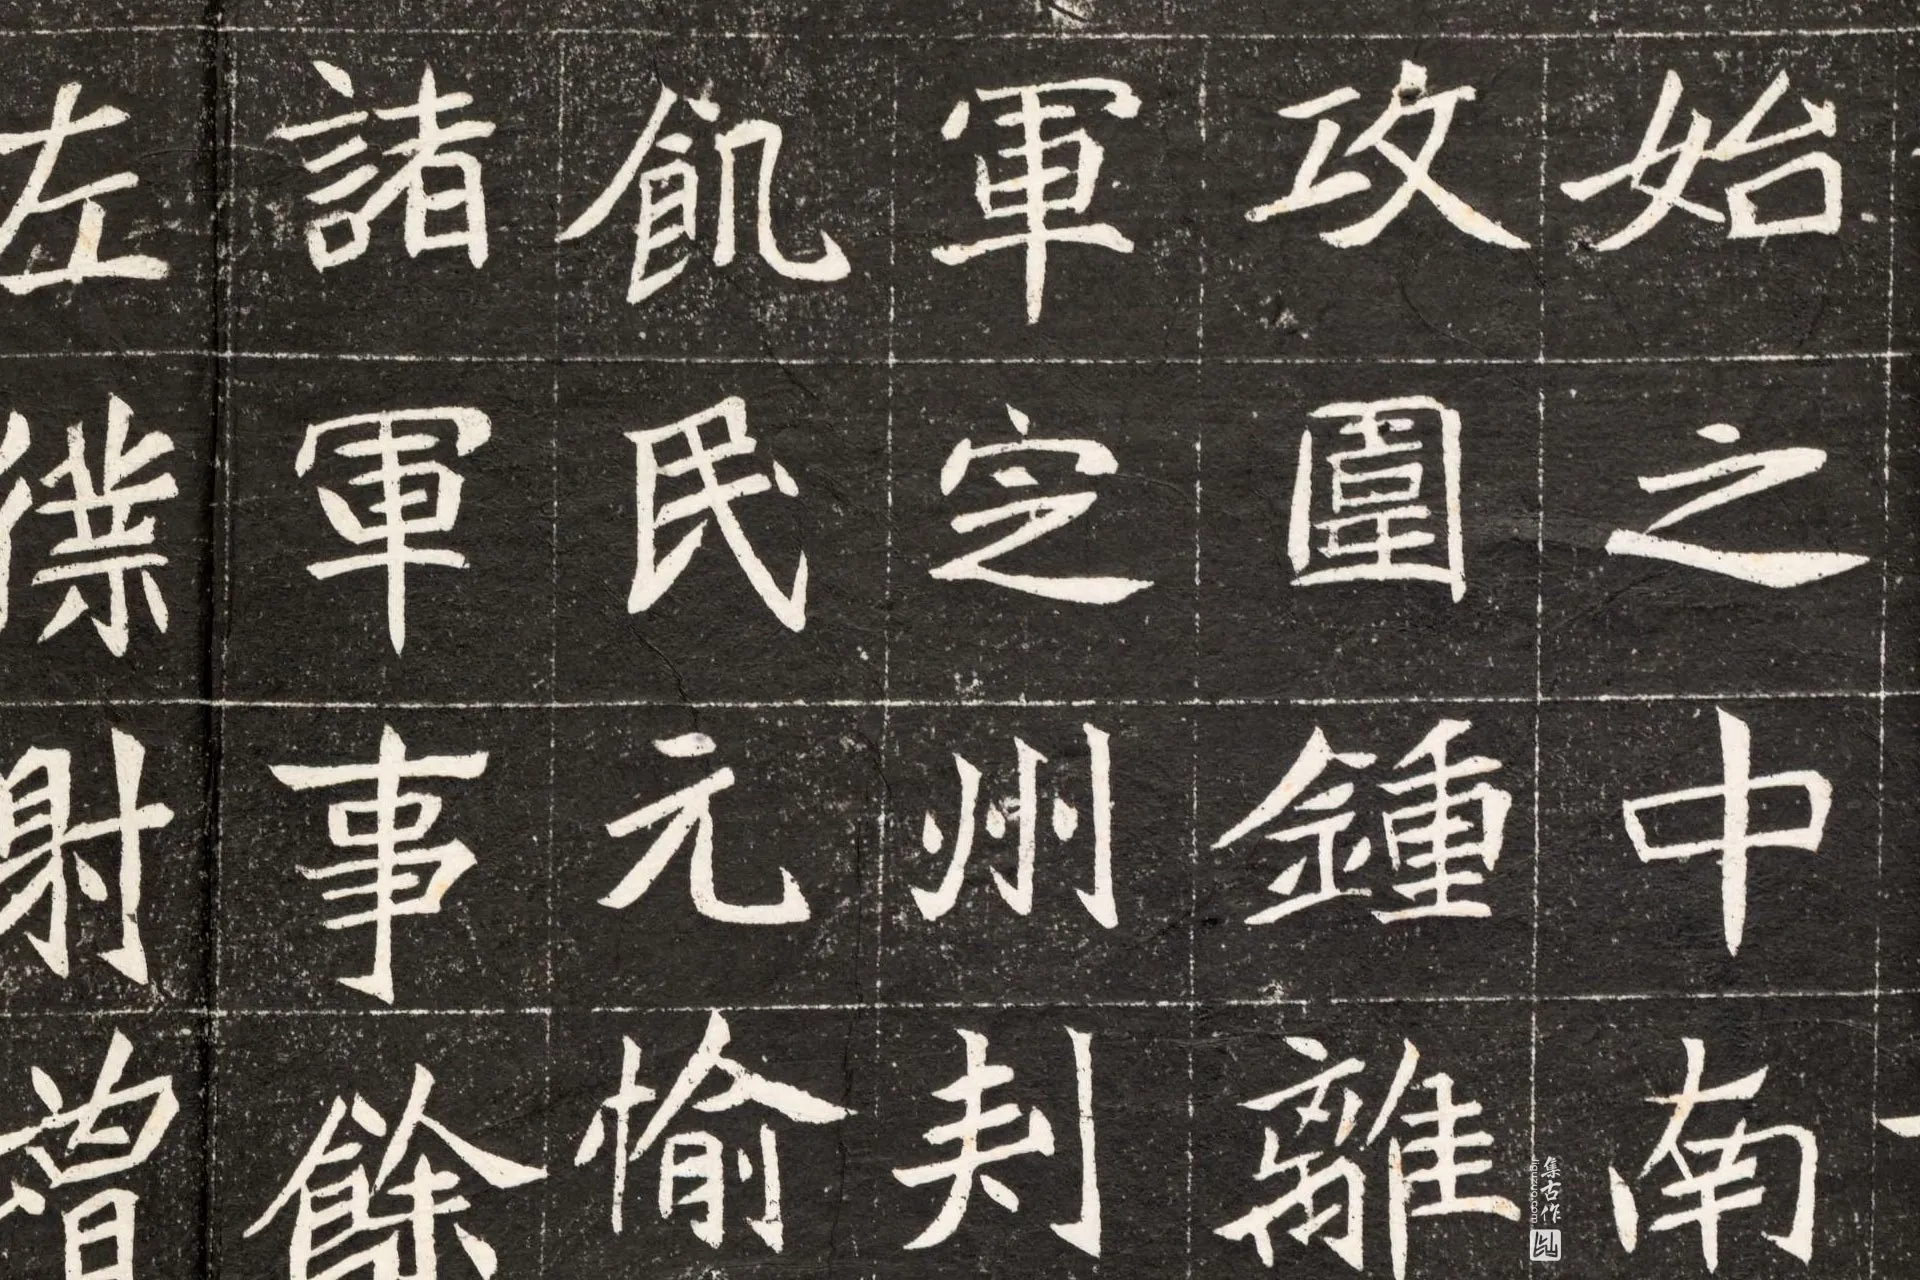 始之中南
攻圍鍾離
軍定州刾
飢民元愉
諸軍事餘
左僕射贈
集古作
jiguzuo.com